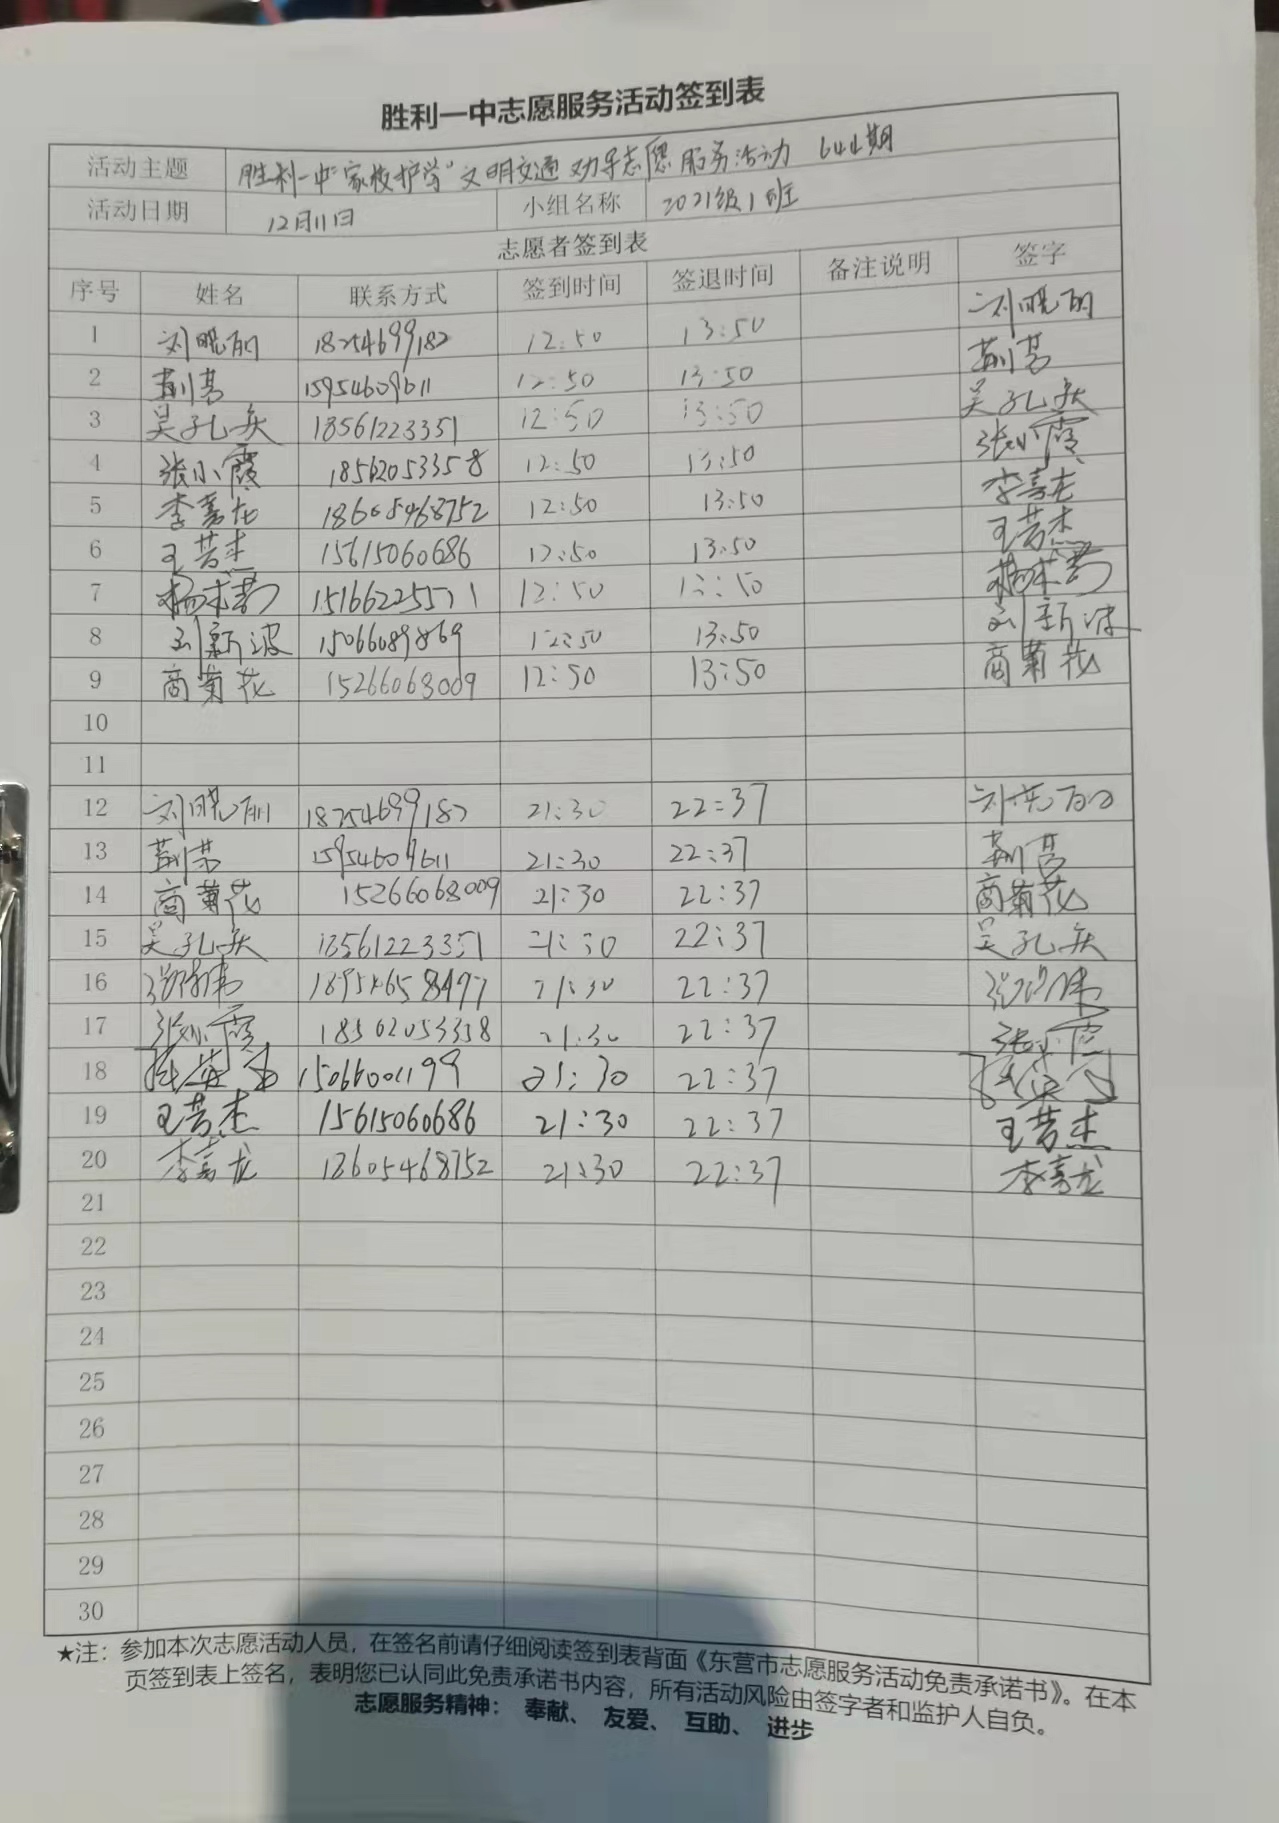 胜利一中志愿服务活动签到表
活动主题 胜利一中"家校护学"文明交通劝导志愿服务活动 644期
活动日期 12月11日 小组名称 2021级1班
志愿者签到表
序号 姓名 联系方式 签到时间 签退时间 备注说明 签字
1 刘晓丽 18254699182 12:50 13:50 刘晓丽
2 荆营 15954609611 12:50 13:50 荆营
3 吴孔兵 18561223351 12:50 13:50 吴孔兵
4 张小霞 18562053358 12:50 13:50 张小霞
5 李嘉龙 18605468752 12:50 13:50 李嘉龙
6 王芳杰 15615060686 12:50 13:50 王芳杰
7 15166225571 12:50 13:50
8 刘新波 15066089869 12:50 13:50 刘新波
9 商菊花 15266068009 12:50 13:50 商菊花
10
11
12 刘晓丽 18254699182 21:30 22:37 刘晓丽
13 荆营 15954609611 21:30 22:37 荆营
14 商菊花 15266068009 21:30 22:37 商菊花
15 吴孔兵 18561223351 21:30 22:37 吴孔兵
16 21:30 22:37
17 张小霞 18562053358 21:30 22:37 张小霞
18 15066001199 21:30 22:37
19 王芳杰 15615060686 21:30 22:37 王芳杰
20 李嘉龙 18605468752 21:30 22:37 李嘉龙
21
22
23
24
25
26
27
28
29
30
★注：参加本次志愿活动人员，在签名前请仔细阅读签到表背面《东营市志愿服务活动免责承诺书》。在本
页签到表上签名，表明您已认同此免责承诺书内容，所有活动风险由签字者和监护人自负。
志愿服务精神： 奉献、 友爱、 互助、 进步